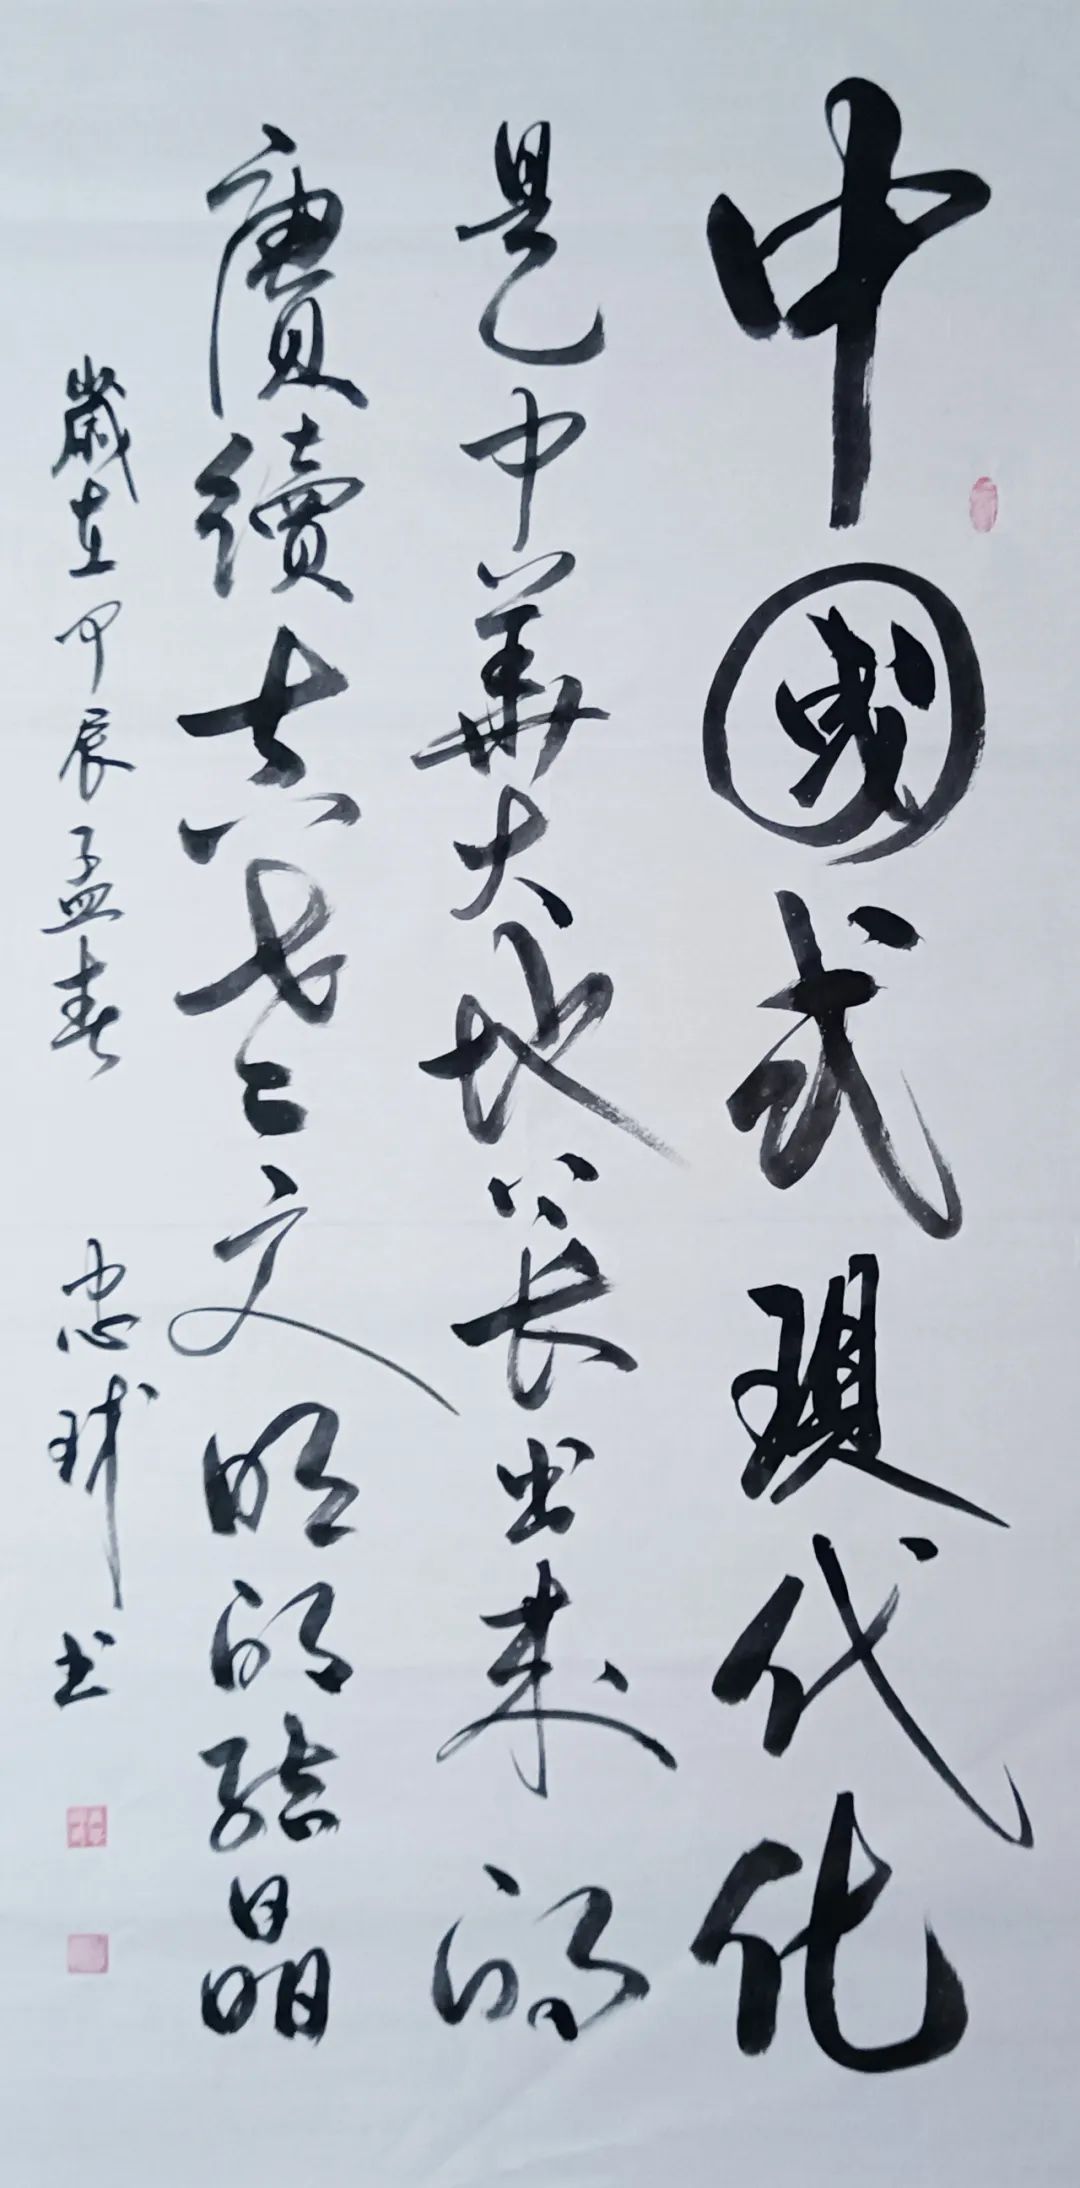 中國式現代化
是中華大地苌出来的
賡續古老文明的結晶
歲在甲辰孟春 忠 书